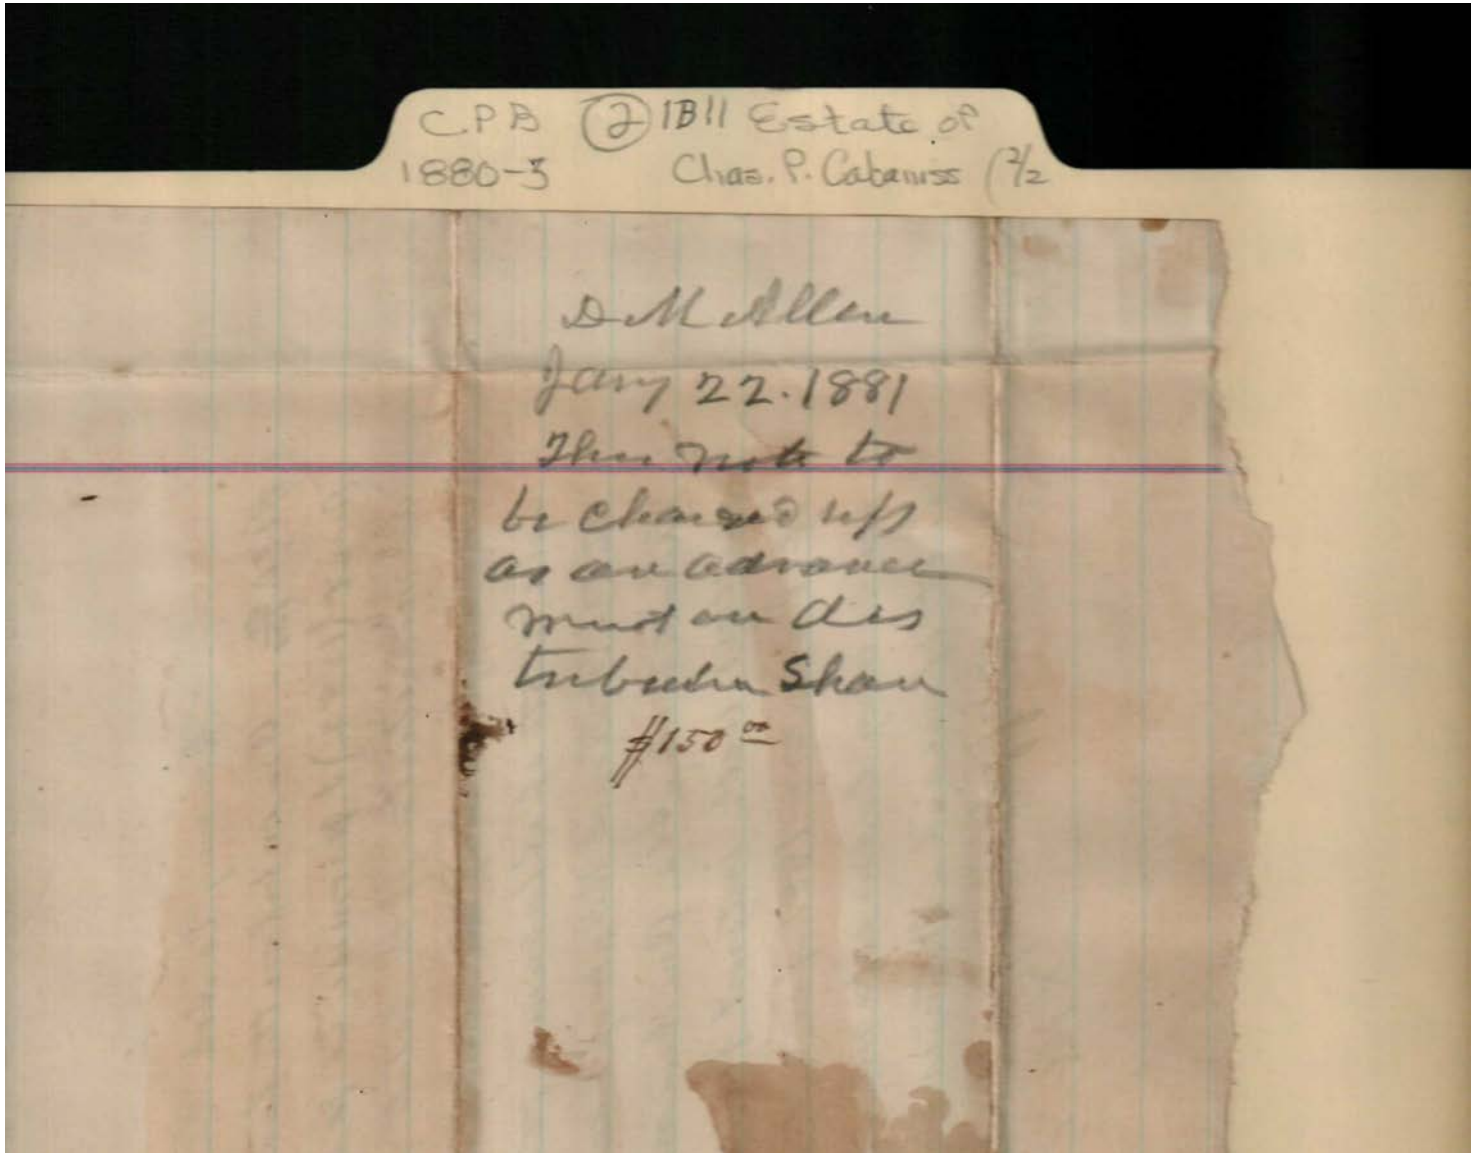 CPB ② 1B11 Estate of
1880-3 Chas. P. Cabaniss (2/2
D M Allen
Jany 22. 1881
This note to
be charged up
as an advance
ment on dis
tributive Share
$150 00